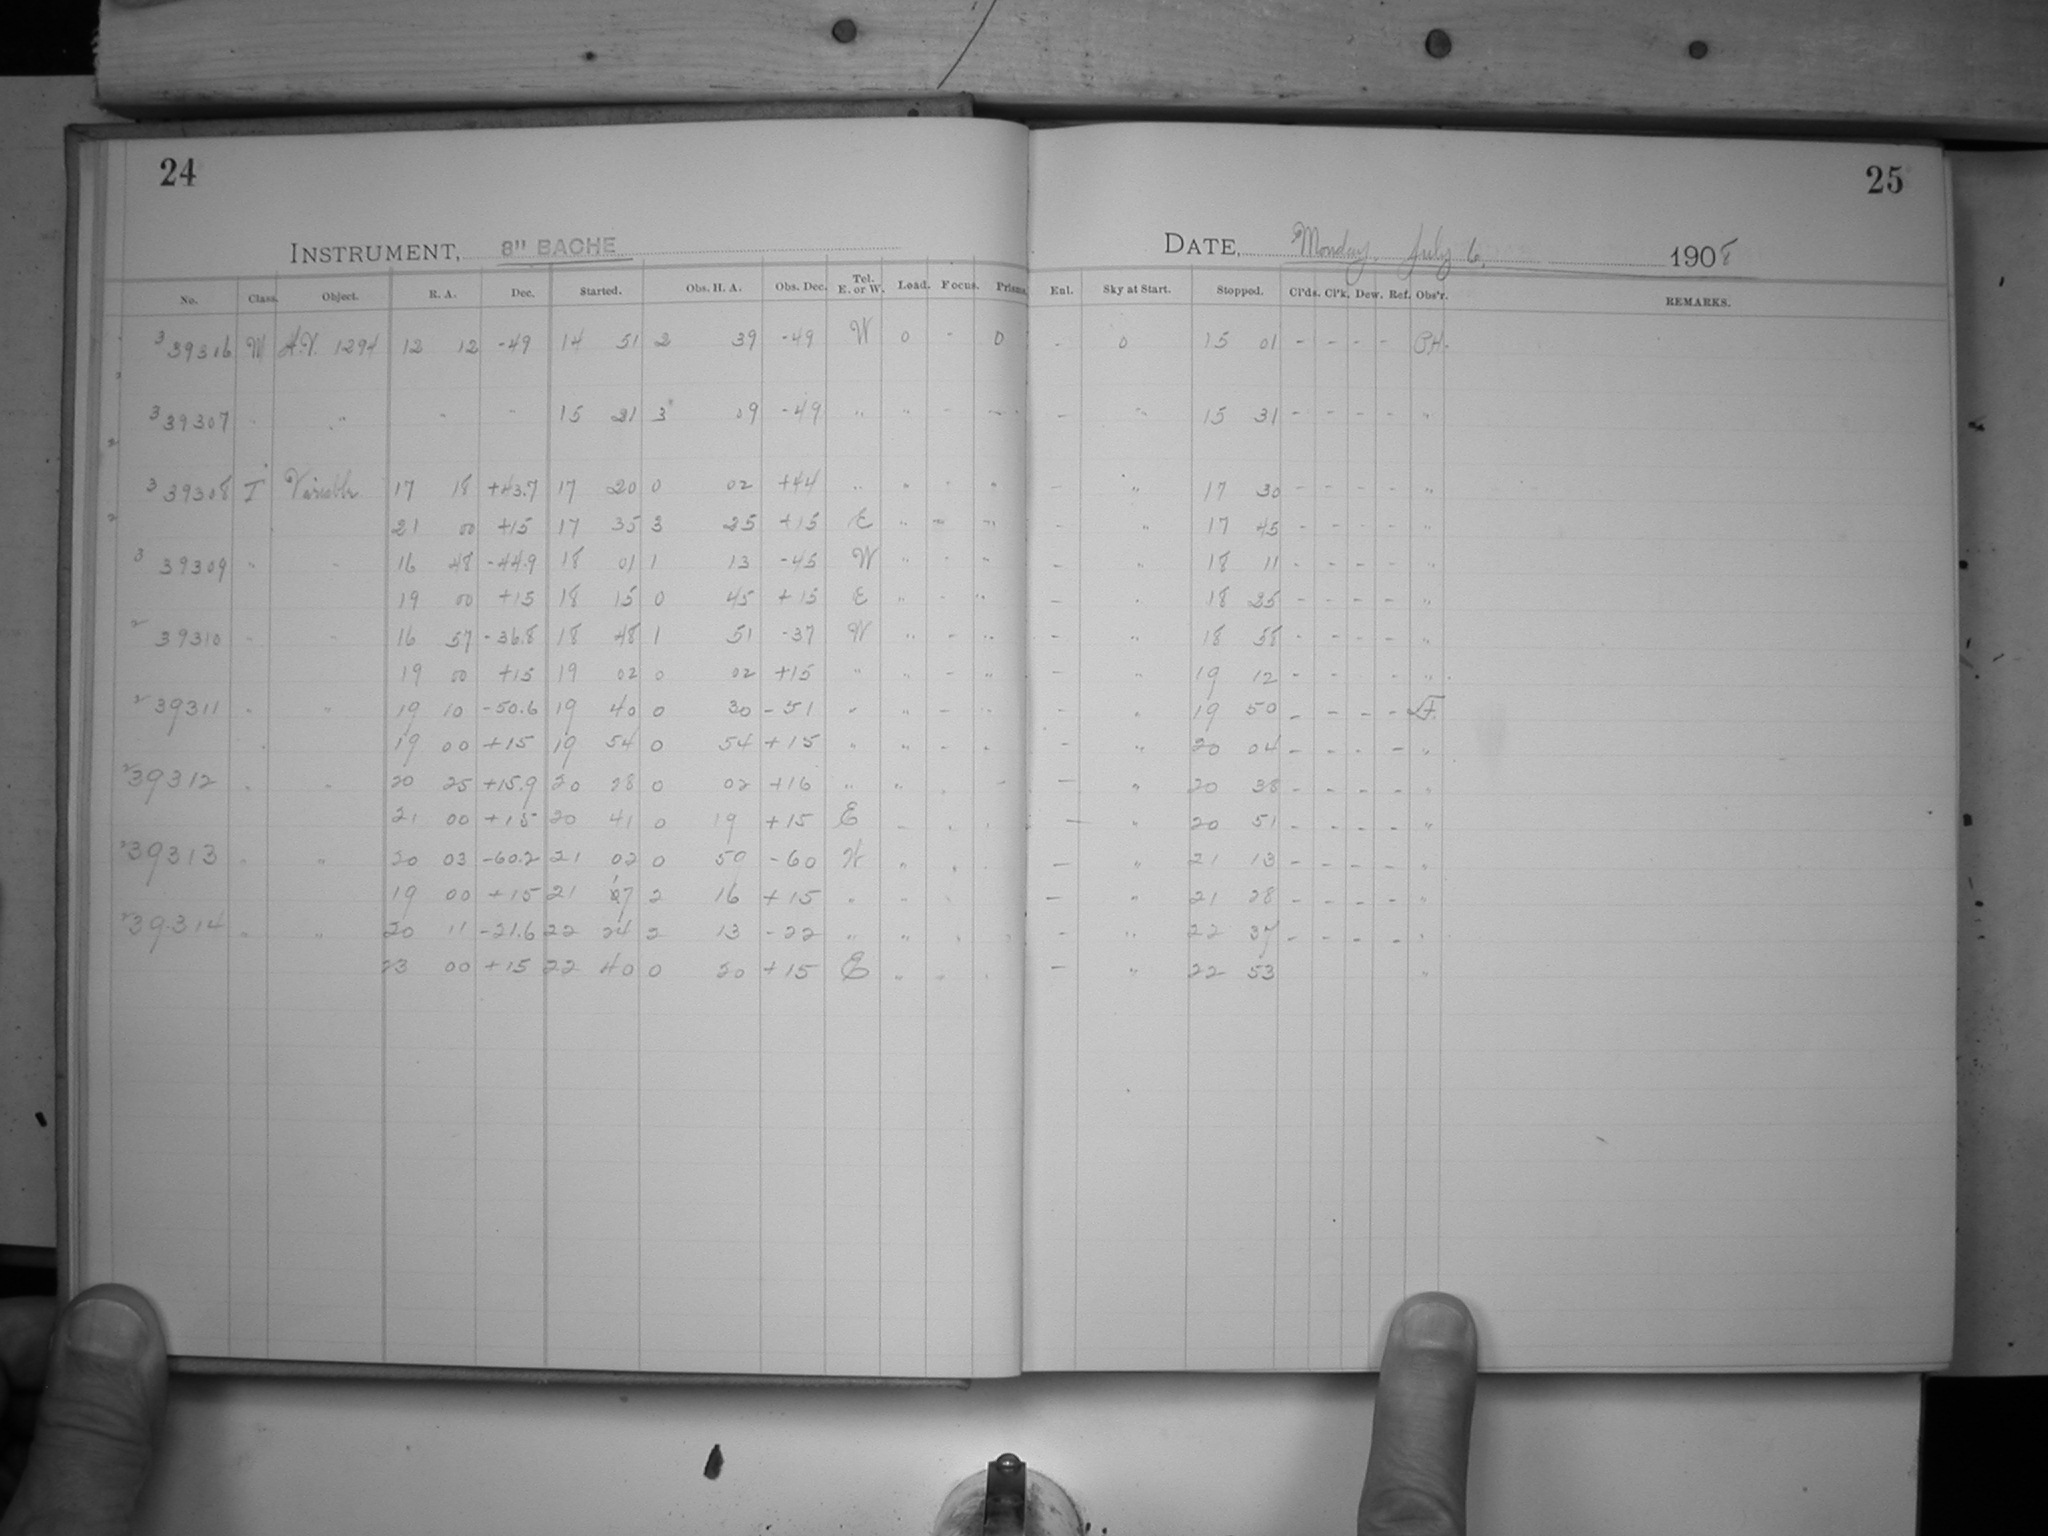 24
25
INSTRUMENT, 8" BACHE
DATE, Monday, July 6, 1908
No. Class. Object. R. A. Dec. Started. Obs. H. A. Obs. Dec. Tel. E. or W. Load. Focus. Prisms. Enl. Sky at Start. Stopped. Cl'ds. Cl'k. Dew. Ref. Obs'r. REMARKS.
3 39316 M A.V. 1294 12 12 -49 14 51 2 39 -49 W 0 - 0 - 0 15 01 - - - -
3 39307 " " " " 15 21 3 09 -49 " " - - - " 15 31 - - - - "
3 39308 I Variable 17 18 +43.7 17 20 0 02 +44 " " - " - " 17 30 - - - - "
21 00 +15 17 35 3 25 +15 E " - " - " 17 45 - - - - "
3 39309 " " 16 48 -44.9 18 01 1 13 -45 W " - " - " 18 11 - - - - "
19 00 +15 18 15 0 45 +15 E " - " - " 18 25 - - - - "
2 39310 " " 16 57 -36.8 18 48 1 51 -37 W " - " - " 18 58 - - - - "
19 00 +15 19 02 0 02 +15 " " - " - " 19 12 - - - - "
2 39311 " " 19 10 -50.6 19 40 0 30 -51 " " - " - " 19 50 - - - -
19 00 +15 19 54 0 54 +15 " " - " - " 20 04 - - - - "
2 39312 " " 20 25 +15.9 20 28 0 02 +16 " " " - - " 20 38 - - - - "
21 00 +15 20 41 0 19 +15 E - " " - " 20 51 - - - - "
2 39313 " " 20 03 -60.2 21 02 0 59 -60 W " " - " 21 13 - - - - "
19 00 +15 21 17 2 16 +15 " " " - " 21 28 - - - - "
2 39314 " " 20 11 -21.6 22 24 2 13 -22 " " " " - " 22 37 - - - - "
23 00 +15 22 40 0 20 +15 E " " " - " 22 53 "